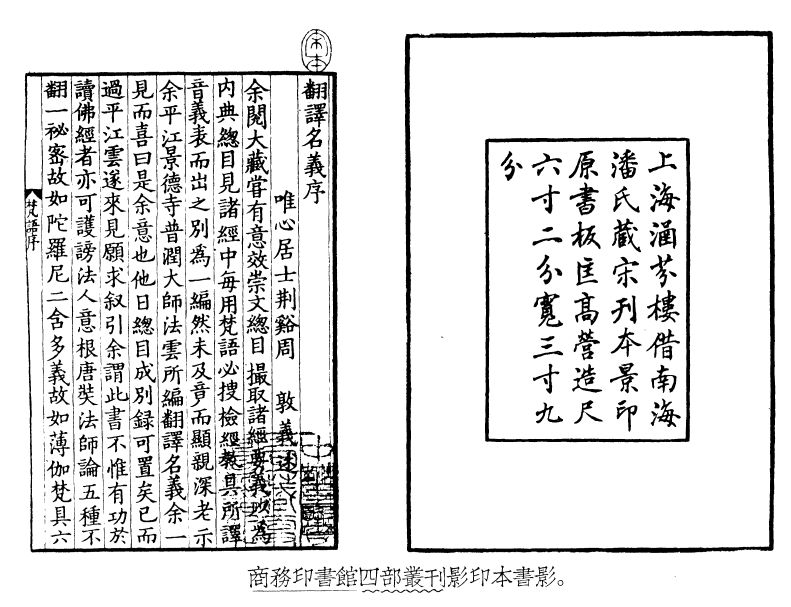 上海涵芬樓借南海
潘氏藏宋刊本景印
原書板匡高營造尺
六寸二分寬三寸九
分
翻譯名義序
唯心居士荆谿周 敦義述
余閱大藏甞有意效崇文總目撮取諸經要義以為
内典總目見諸經中每用梵語必搜檢經教具所譯
音義表而出之别為一編然未及竟而顯親深老示
余平江景德寺普潤大師法雲所編翻譯名義余一
見而喜曰是余意也他日總目成别録可置矣已而
過平江雲遂來見願求叙引余謂此書不惟有功於
讀佛經者亦可護謗法人意根唐奘法師論五種不
翻一祕密故如陀羅尼二含多義故如薄伽梵具六
梵語序
商務印書館四部叢刊影印本書影。